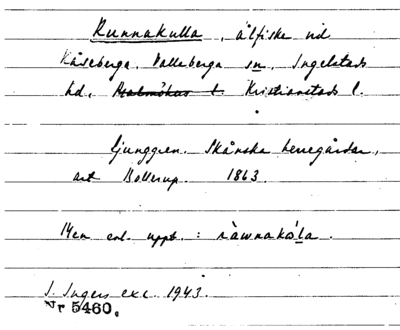 Runnakulla, ålfiske vid
Kåseberga, Valleberga sn, Ingelstads
hd, Malmöhus l Kristianstads l.
Ljunggren. Skånska herregårdar,
art Bollerup. 1863.
14en enl. uppt. : ràwnakòla.
J. Ingers exc 1943.
Nr 5460.